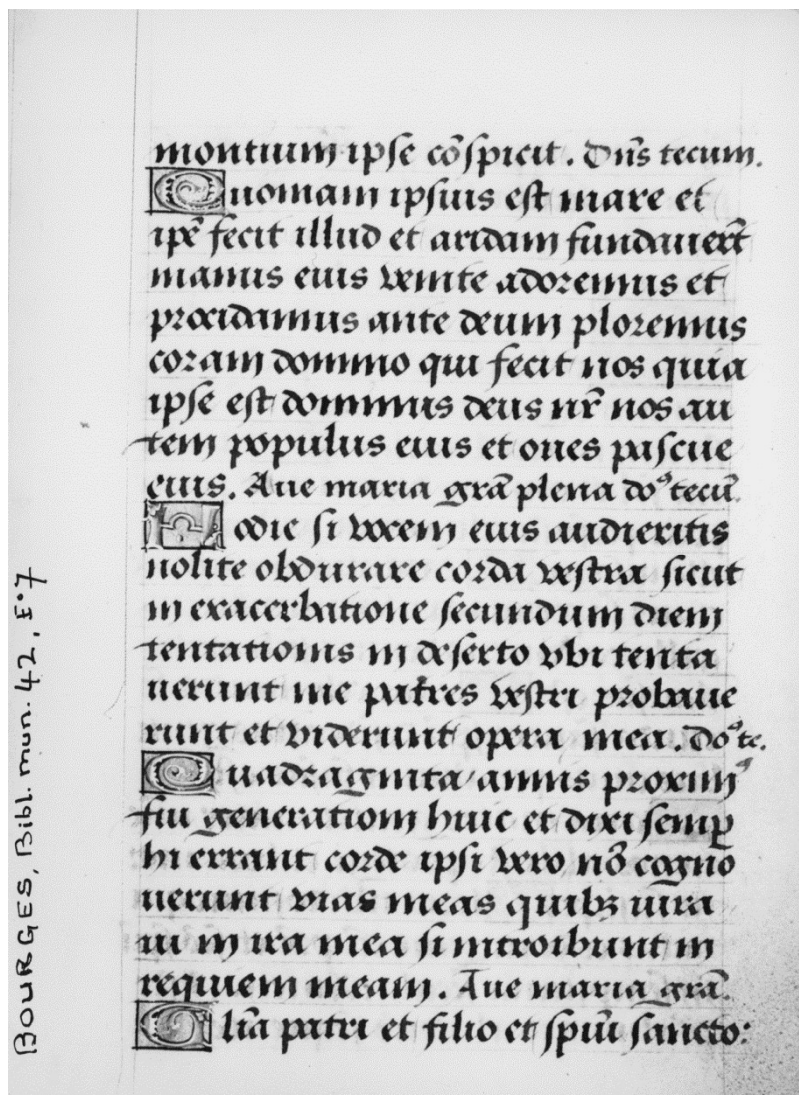 montium ipse cõspicit. Dñs tecum.
Quoniam ipsius est mare et
ipẽ fecit illud et aridam fundauert̃
manus eius venite adoremus et
procidamus ante deum ploremus
coram domino qui fecit nos quia
ipse est dominus deus nr̃ nos au
tem populus eius et oues pascue
eius. Aue maria grã plena doꝰ tecũ.
Hodie si vocem eius audieritis
nolite obdurare corda vestra sicut
in exacerbatione secundum diem
tentationis in deserto vbi tenta
uerunt me patres vestri probaue
runt et viderunt opera mea. Doꝰ te.
Quadraginta annis proximꝰ
fui generationi huic et dixi semꝑ
hi errant corde ipsi vero nõ cogno
uerunt vias meas quibꝫ iura
ui in ira mea si introibunt in
requiem meam. Aue maria grã.
Glĩa patri et filio et spiũi sancto:
BOURGES, Bibl. mun. 42, f°7